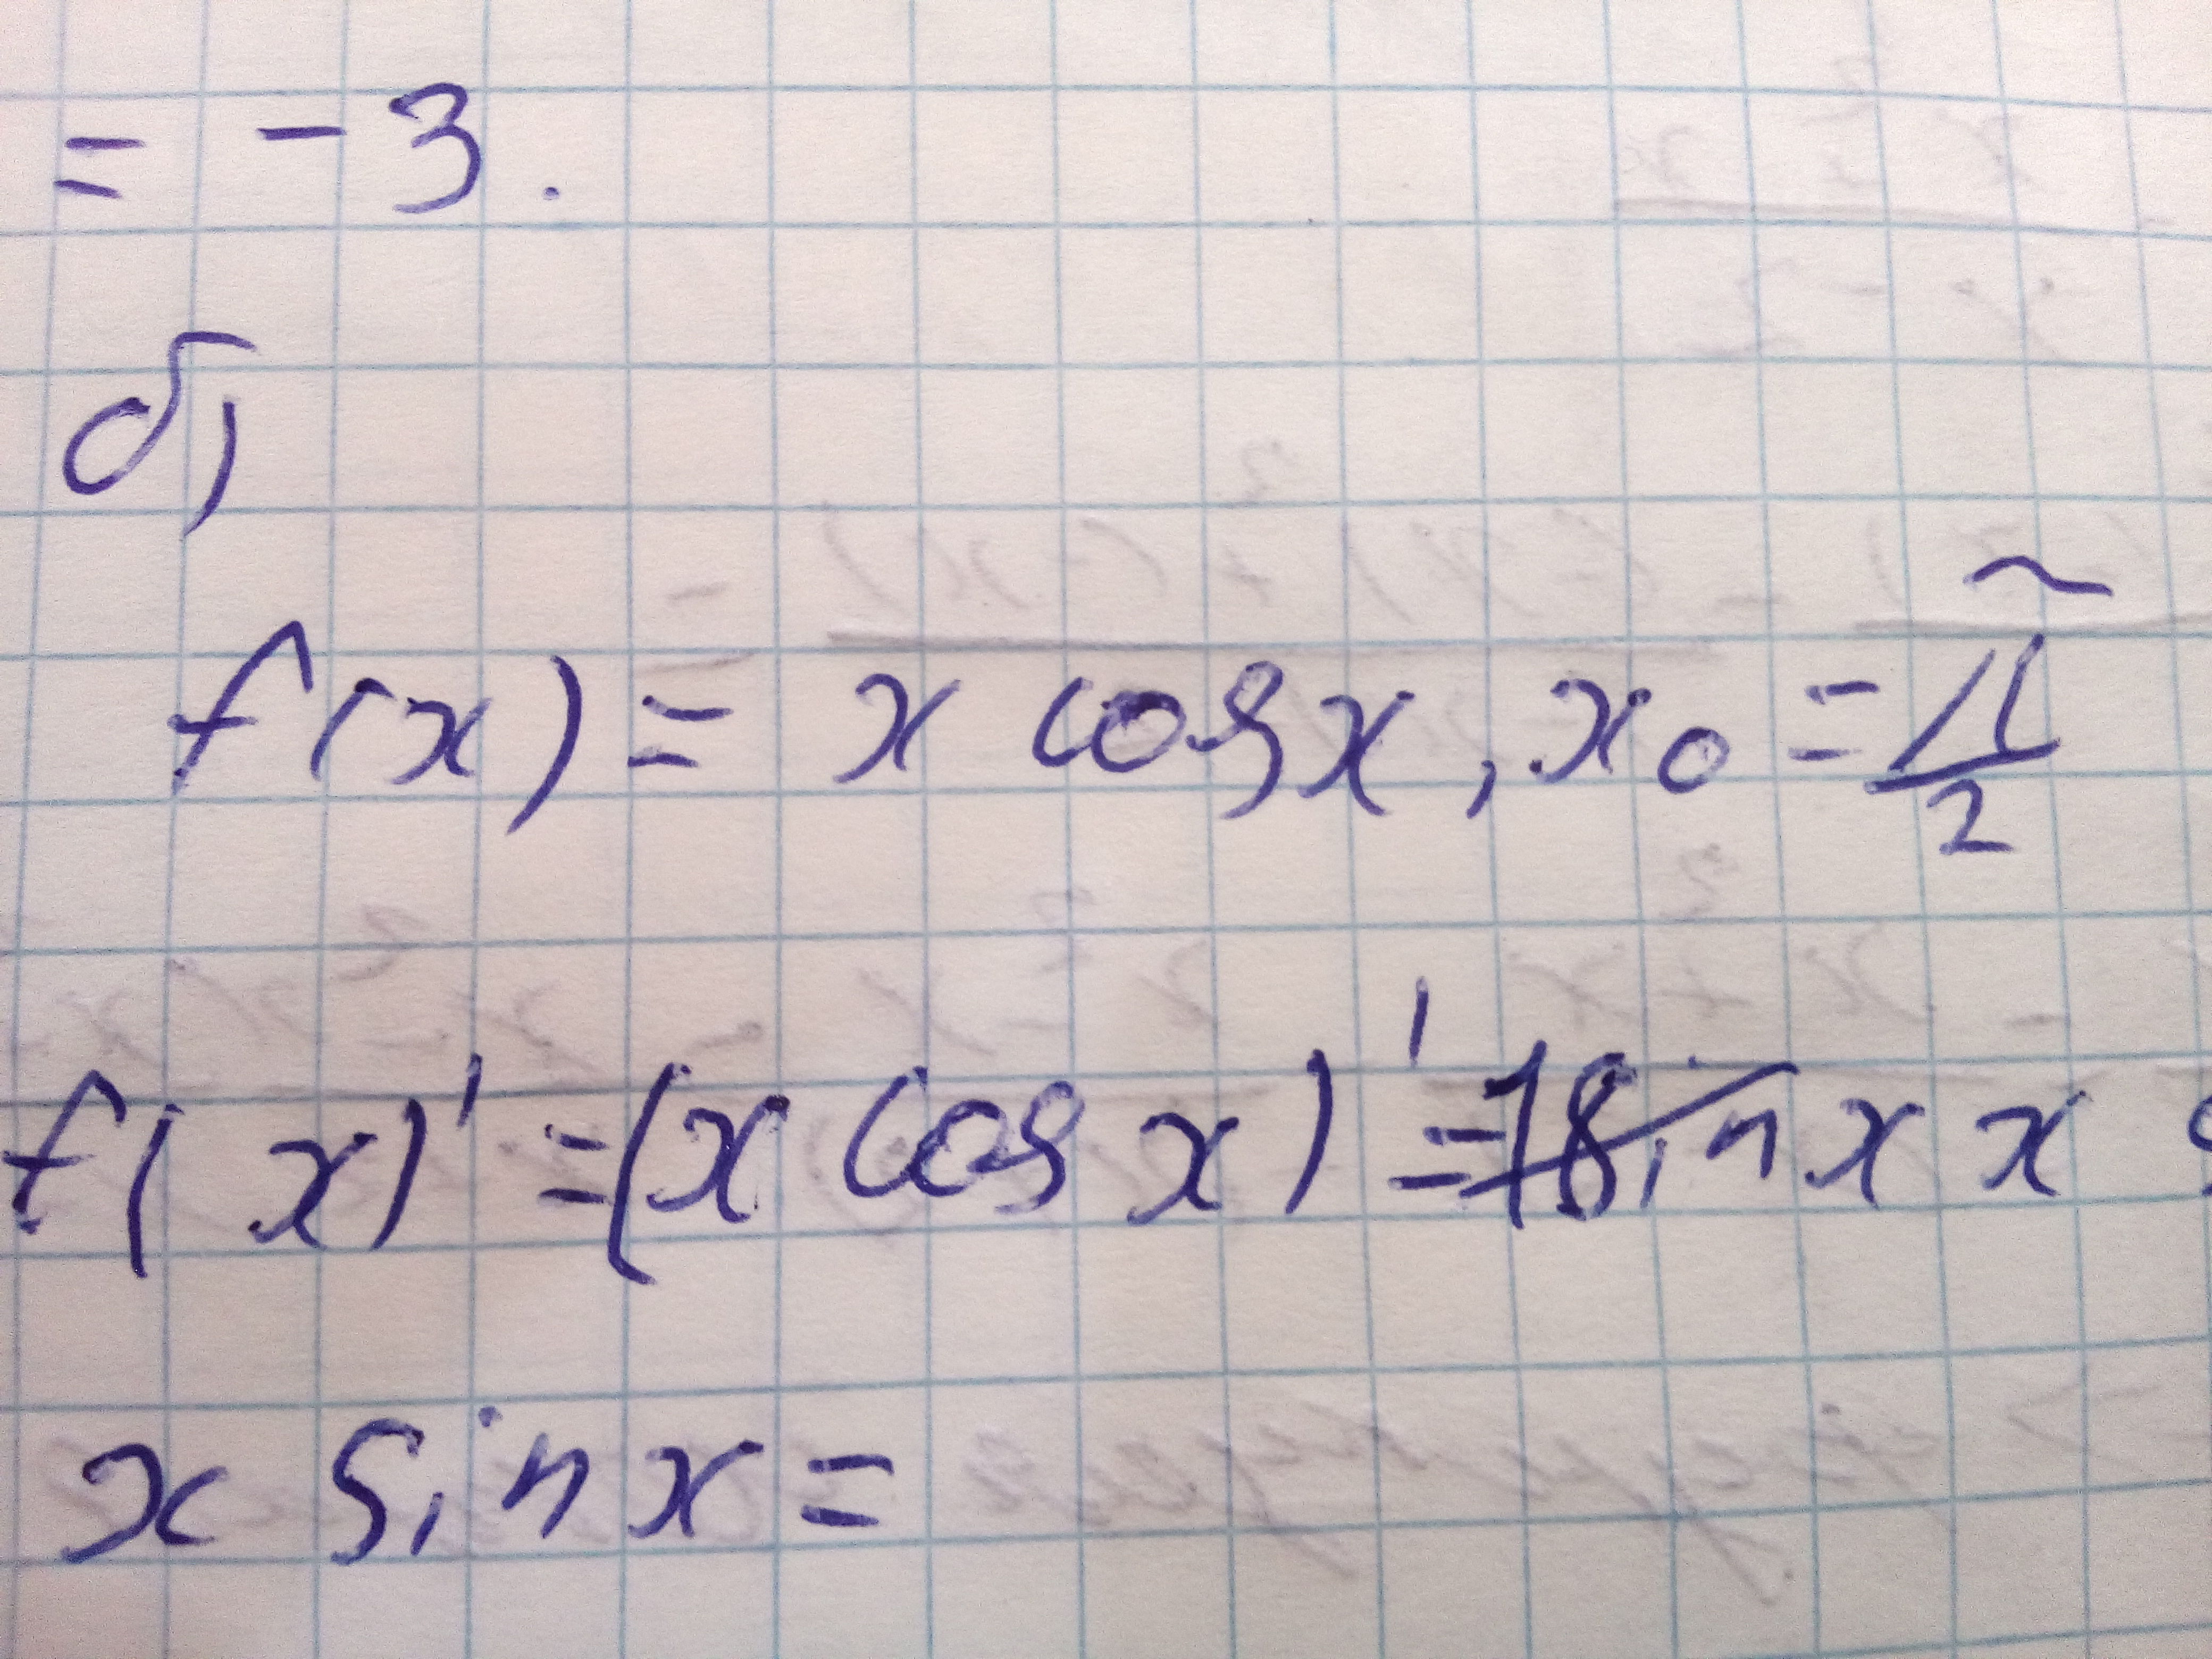 = -3.
б)
f(x) = x cos x, x₀ = π/2
f(x)' = (x cos x)' = sin x x
x sin x =